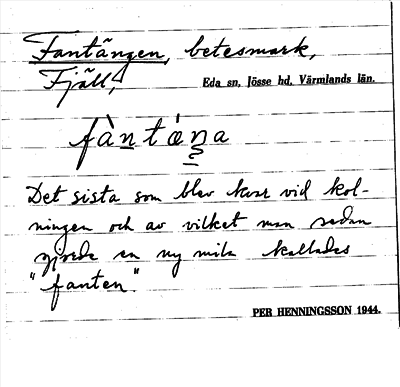 Fantängen, betesmark,
Fjäll,
Eda sn, Jösse hd, Värmlands län.
fàntáŋa
Det sista som blev kvar vid kol-
ningen och av vilket man sedan
gjorde en ny mila kallades
"fanten".
PER HENNINGSSON 1944.